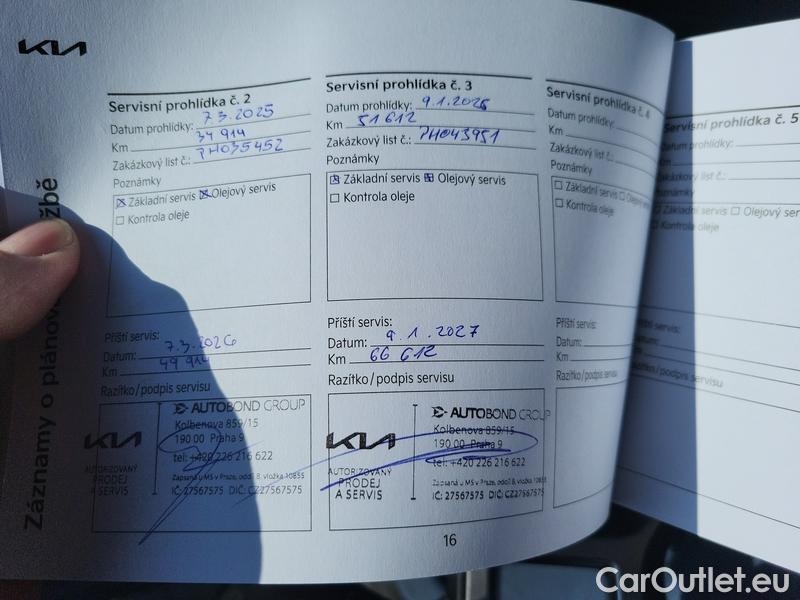 KIA
Záznamy o plánova žbě
Servisní prohlídka č. 2
Datum prohlídky: 7.3.2025
Km 34 914
Zakázkový list č.: PH035452
Poznámky
Základní servis Olejový servis
Kontrola oleje
Příští servis:
Datum: 7.3.2026
Km 49 914
Razítko/podpis servisu
KIA
AUTORIZOVANÝ
PRODEJ
A SERVIS
AUTOBOND GROUP
Kolbenova 859/15
190 00 Praha 9
tel: +420 226 216 622
Zapsaná u MS v Praze, oddíl B, vložka 10855
IČ: 27567575 DIČ: CZ27567575
Servisní prohlídka č. 3
Datum prohlídky: 9.1.2026
Km 51 612
Zakázkový list č.: PH043951
Poznámky
Základní servis Olejový servis
Kontrola oleje
Příští servis:
Datum: 9.1.2027
Km 66 612
Razítko/podpis servisu
KIA
AUTORIZOVANÝ
PRODEJ
A SERVIS
AUTOBOND GROUP
Kolbenova 859/15
190 00 Praha 9
tel: +420 226 216 622
Zapsaná u MS v Praze, oddíl B, vložka 10855
IČ: 27567575 DIČ: CZ27567575
Servisní prohlídka č. 4
Datum prohlídky:
Km
Zakázkový list č.:
Poznámky
Základní servis Olejový
Kontrola oleje
Příští servis:
Datum:
Km
Razítko/podpis servisu
Servisní prohlídka č. 5
Datum prohlídky:
Km
Zakázkový list č.:
Poznámky
Základní servis Olejový ser
Kontrola oleje
servis:
servisu
16
CarOutlet.eu